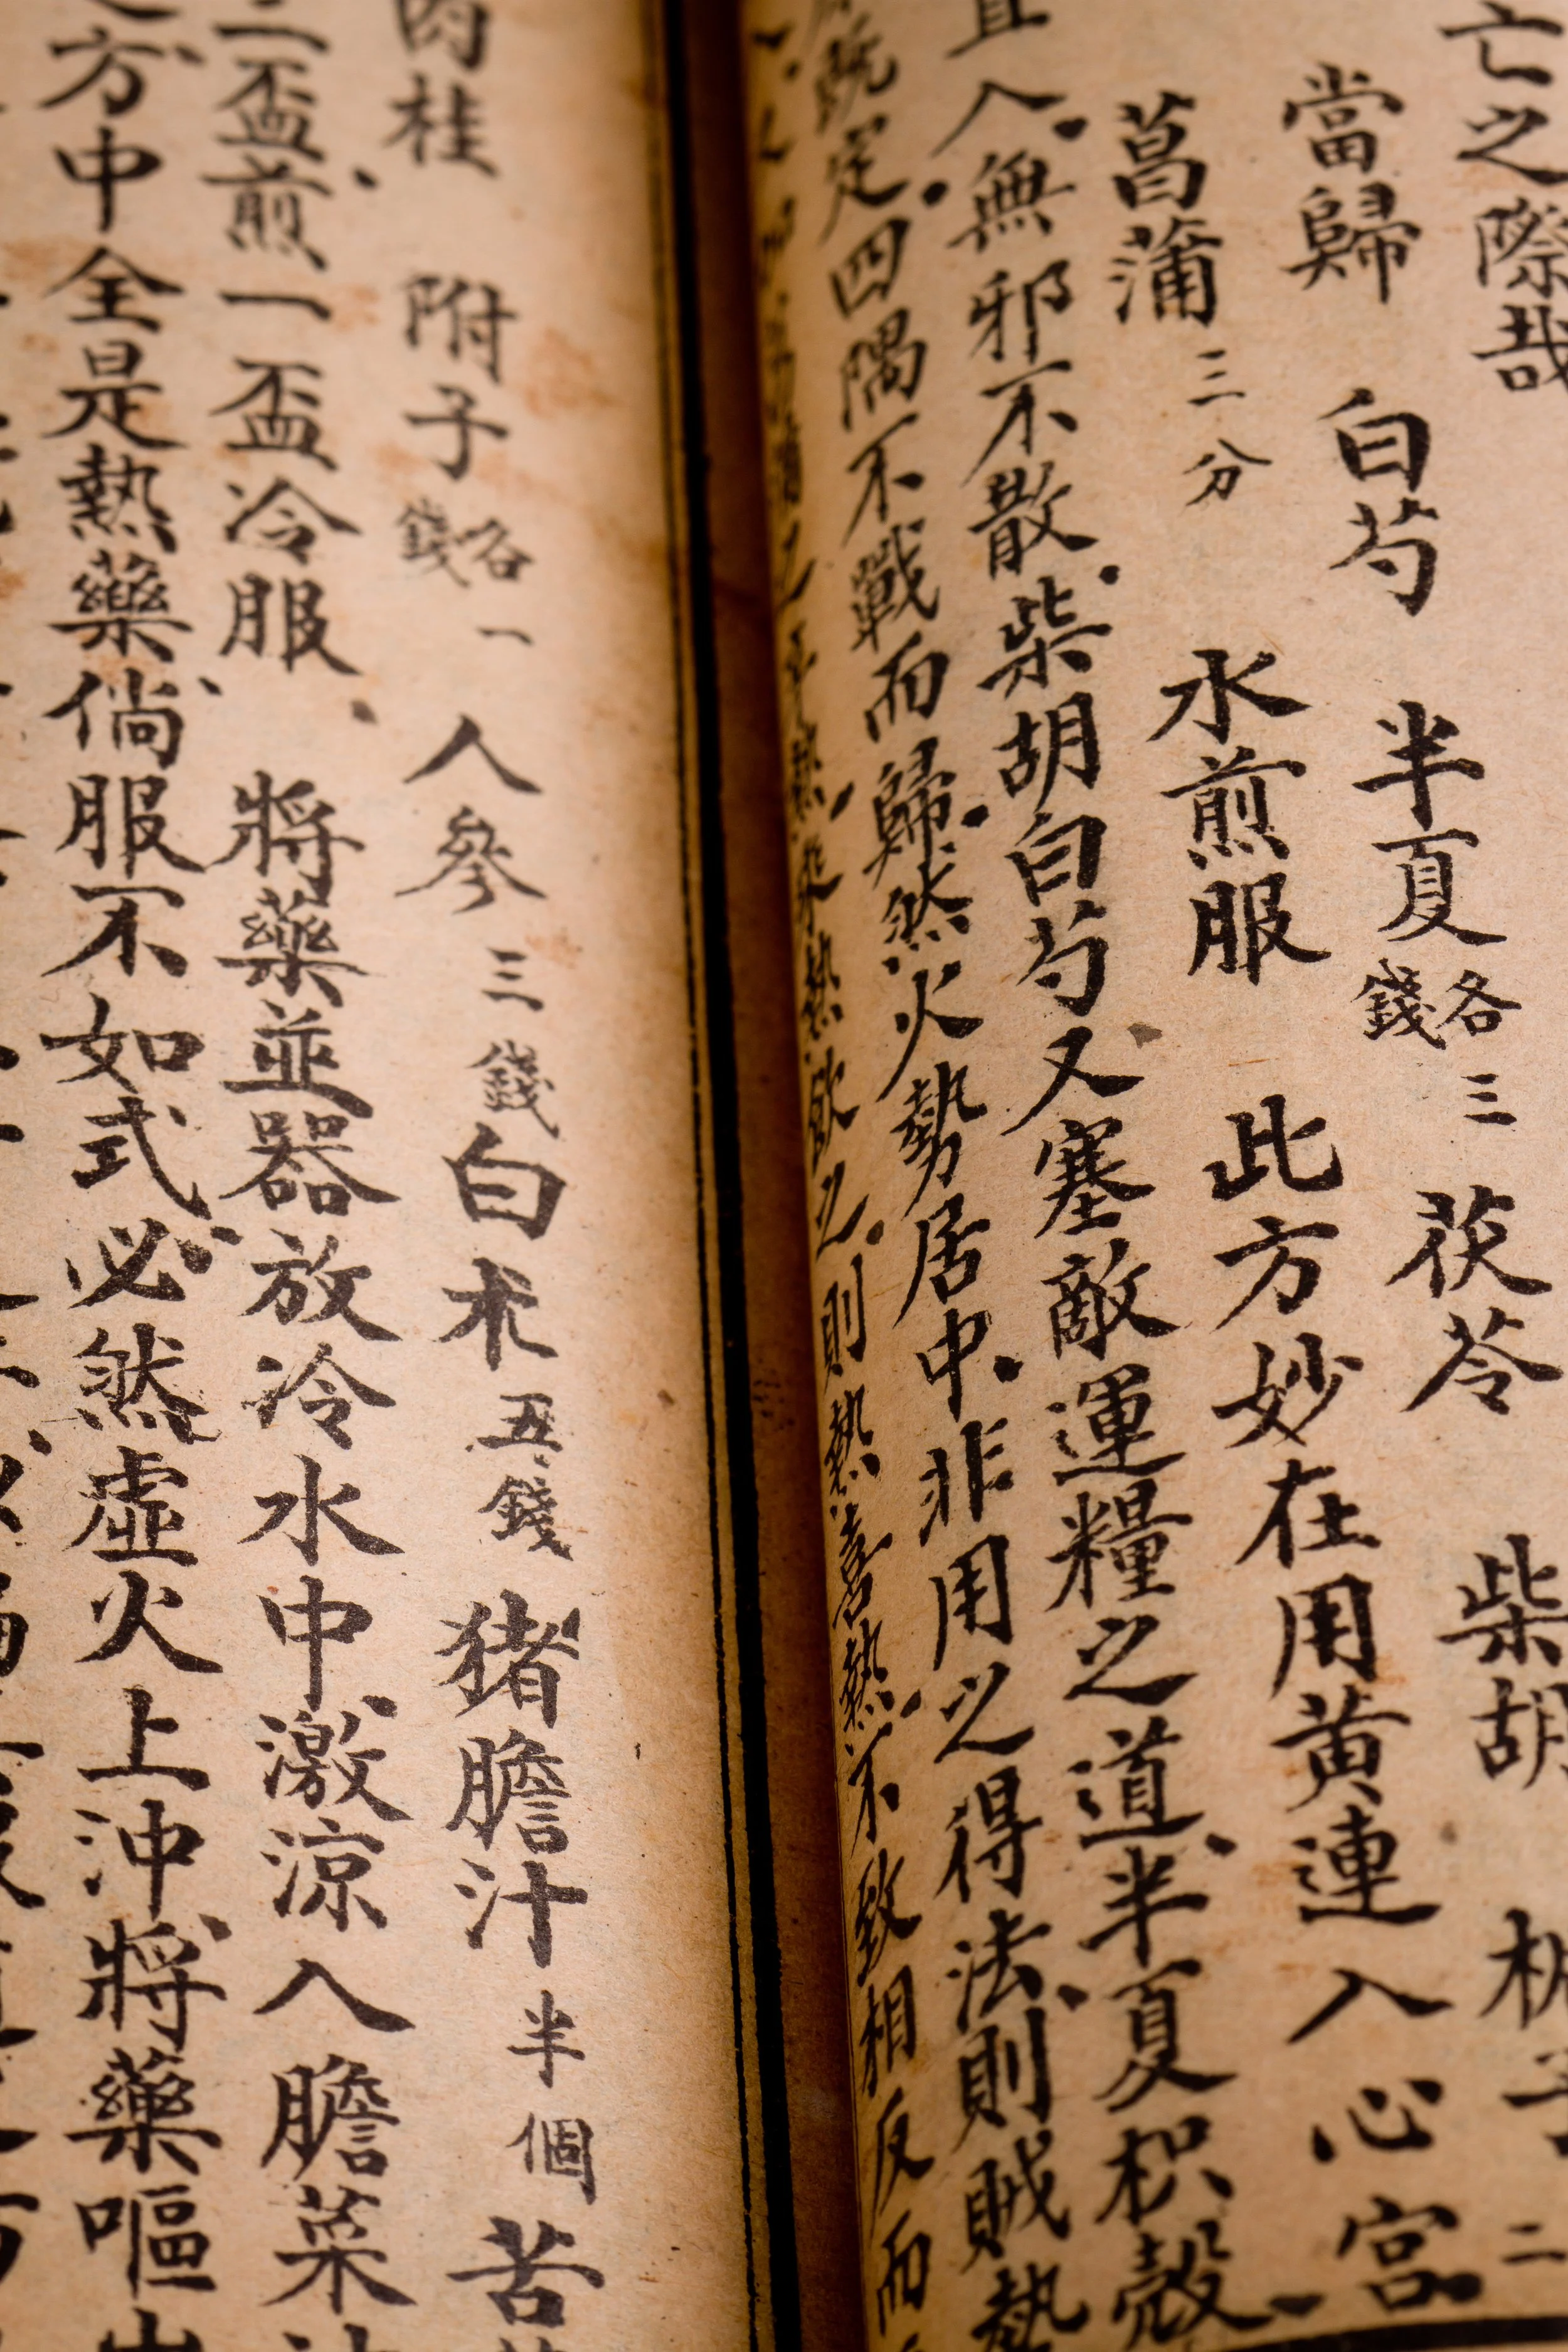 亡之際哉
當歸 白芍 半夏各三錢 茯苓 柴胡
菖蒲三分 水煎服 此方妙在用黄連入心宮
直入無邪不散柴胡白芍又塞敵運糧之道半夏枳殼
既定四隅不戰而歸然火勢居中非用之得法則賊勢
之則熱喜熱不致相反而
肉桂 附子各一錢 人參三錢 白朮五錢 猪膽汁半個 苦
二盃煎一盃冷服 將藥並器放冷水中激凉入膽菜
方中全是熱藥倘服不如式必然虛火上沖將藥嘔